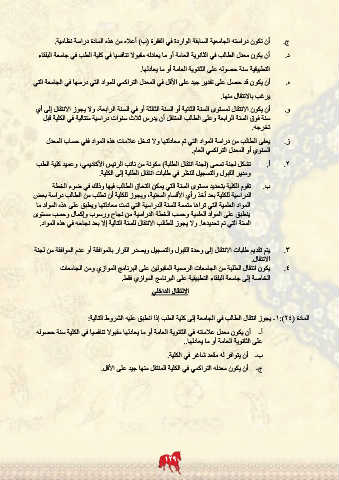 ج. أن تكون دراسته الجامعية السابقة الواردة في الفقرة (ب) أعلاه من هذه المادة دراسة نظامية.
د. أن يكون معدل الطالب في الثانوية العامة أو ما يعادله مقبولا تنافسيا في كلية الطب في جامعة البلقاء
التطبيقية سنة حصوله على الثانوية العامة أو ما يعادلها.
ه. أن يكون قد حصل على تقدير جيد على الأقل في المعدل التراكمي للمواد التي درسها في الجامعة التي
يرغب بالانتقال منها.
و. أن يكون الانتقال لمستوى السنة الثانية أو السنة الثالثة أو في السنة الرابعة، ولا يجوز الانتقال إلى أي
سنة فوق السنة الرابعة وعلى الطالب المنتقل أن يدرس ثلاث سنوات دراسية متتالية في الكلية قبل
تخرجه.
ز. يعفى الطالب من دراسة المواد التي تم معادلتها ولا تدخل علامات هذه المواد في حساب المعدل
السنوي أو المعدل التراكمي العام.
٢. أ. تشكل لجنة تسمى (لجنة انتقال الطلبة) مكونة من نائب الرئيس الأكاديمي، وعميد كلية الطب
ومدير القبول والتسجيل للنظر في طلبات انتقال الطلبة إلى الكلية.
ب. تقوم الكلية بتحديد مستوى السنة التي يمكن التحاق الطالب فيها وذلك في ضوء الخطة
الدراسية للكلية بعد أخذ رأي الأقسام المعنية، ويجوز للكلية أن تطلب من الطالب دراسة بعض
المواد العلمية التي تراها متممة للسنة الدراسية التي تمت معادلتها ويطبق على هذه المواد ما
ينطبق على المواد العلمية وحسب الخطة الدراسية من نجاح ورسوب وإكمال وحسب مستوى
السنة التي تم تحديدها. ولا يجوز للطالب الانتقال للسنة التالية إلا بعد نجاحه في هذه المواد.
٣. يتم تقديم طلبات الانتقال إلى وحدة القبول والتسجيل ويصدر القرار بالموافقة أو عدم الموافقة من لجنة
الانتقال.
٤. يكون انتقال الطلبة من الجامعات الرسمية المقبولين على البرنامج الموازي ومن الجامعات
الخاصة إلى جامعة البلقاء التطبيقية على البرنامج الموازي فقط.
الانتقال الداخلي
المادة (٢٤):١- يجوز انتقال الطالب في الجامعة إلى كلية الطب إذا انطبق عليه الشروط التالية:
أ- أن يكون معدل علاماته في الثانوية العامة أو ما يعادلها مقبولا تنافسيا في الكلية سنة حصوله
على الثانوية العامة أو ما يعادلها..
ب- أن يتوافر له مقعد شاغر في الكلية.
ج- أن يكون معدله التراكمي في الكلية المنتقل منها جيد على الأقل.